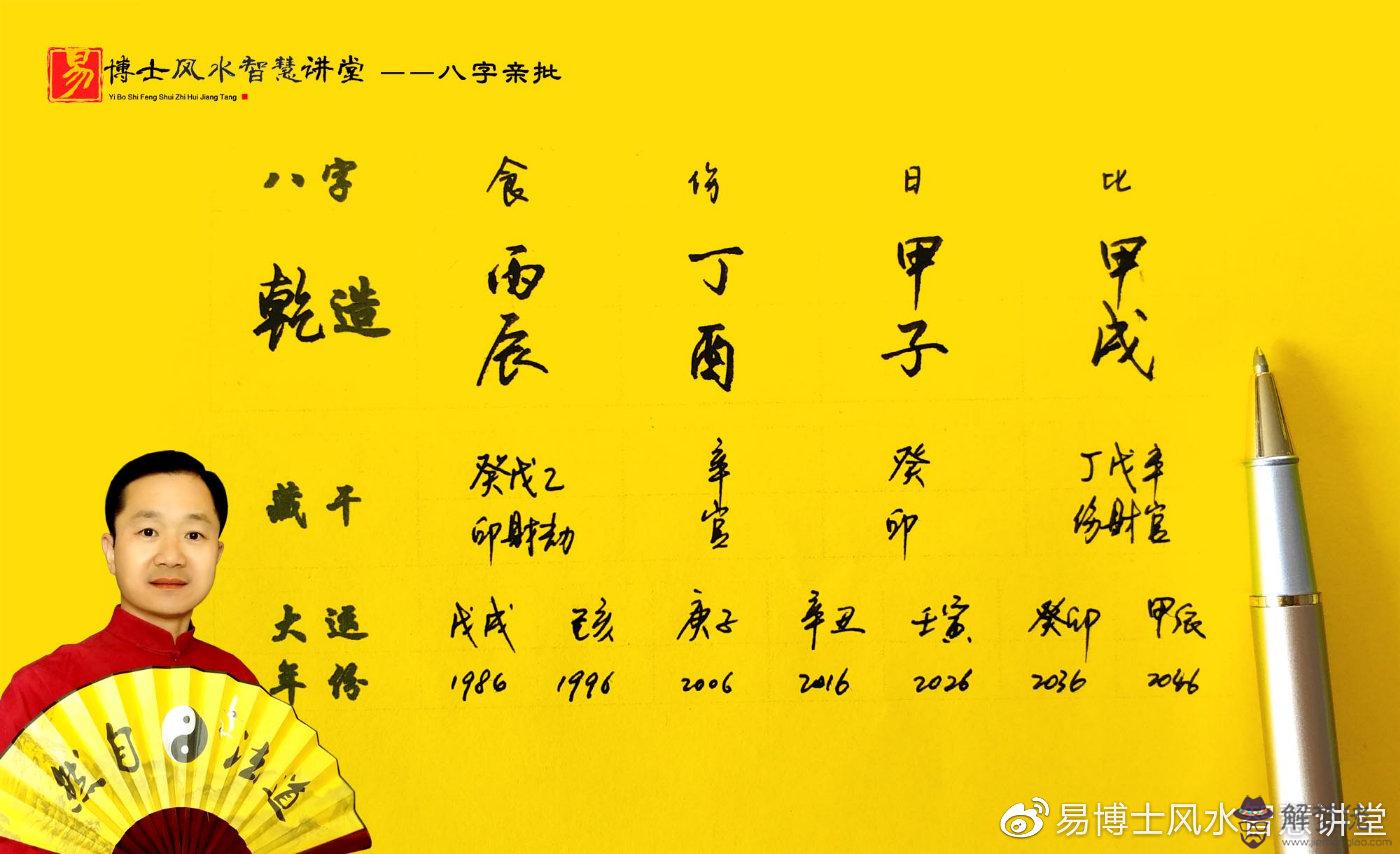 易 博士风水智慧讲堂 ——八字亲批
Yi Bo Shi Feng Shui Zhi Hui Jiang Tang
八字 食 伤 日 比
乾造 丙 丁 甲 甲
辰 酉 子 戌
藏干 癸戊乙 辛 癸 丁戊辛
印财劫 官 印 伤财官
大运 戊戌 己亥 庚子 辛丑 壬寅 癸卯 甲辰
年份 1986 1996 2006 2016 2026 2036 2046
然自法道
易博士风水智慧讲堂